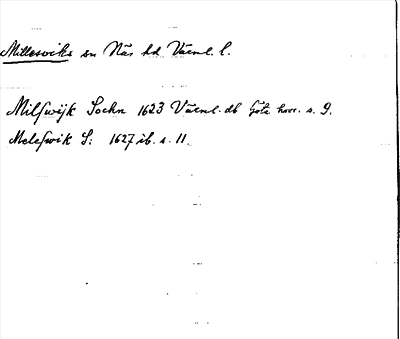 Millesviks sn Näs hd Värml. l.
Milswijk Sochn 1623 Värml. db Göta hovr. s. 9.
Melefwik S: 1627 ib. s. 11.